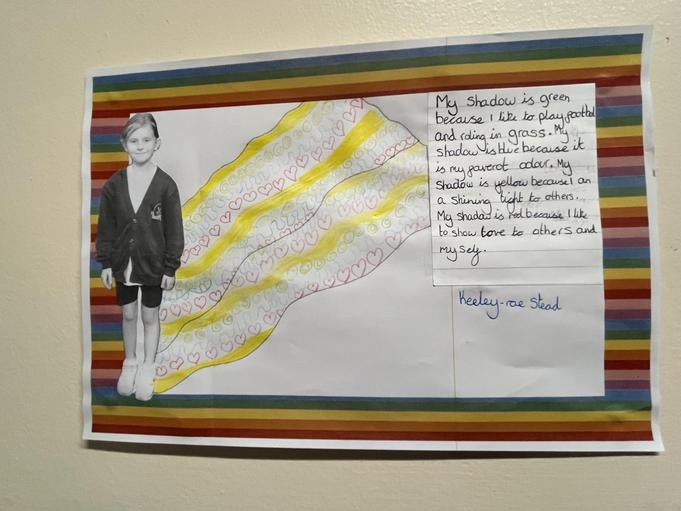 My shadow is green
because I like to play football
and roling in grass. My
shadow is blue because it
is my faverot colour. My
shadow is yellow because I am
a shining light to others.
My shadow is red because I like
to show love to others and
my self.
Keeley-rae Stead